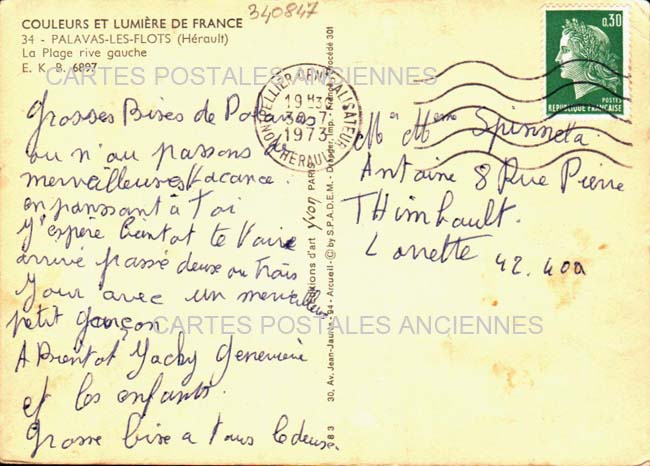 340847
COULEURS ET LUMIÈRE DE FRANCE
34 - PALAVAS-LES-FLOTS (Hérault)
La Plage rive gauche
E. K. B. 6897
CARTES POSTALES ANCIENNES
Grosses Bises de Palavas
ou n'ou passons de
merveilleuses Vacance.
en panssant à Toi
J'espère bientot te Voire
arrivé passé deuse ou Trois
Jour avec un merveilleux
petit garçon
A Bientot Jacky Geneviève
et les enfants.
Grosse bise a Tous le deuse.
CARTES POSTALES ANCIENNES
MONTPELLIER DENTRALISATEUR
19 H30
30-7
1973
HERAULT
Editions d'art yvon PARIS
30, Av. Jean-Jaurès - 94 - Arcueil - © by S.P.A.D.E.M. - Draeger, Imp. - France Procédé 301
0,30
POSTES
REPUBLIQUE FRANÇAISE
Mr Mme Spinneta.
Antoine 8 Rue Pierre
THimbault.
Lorette 42.400